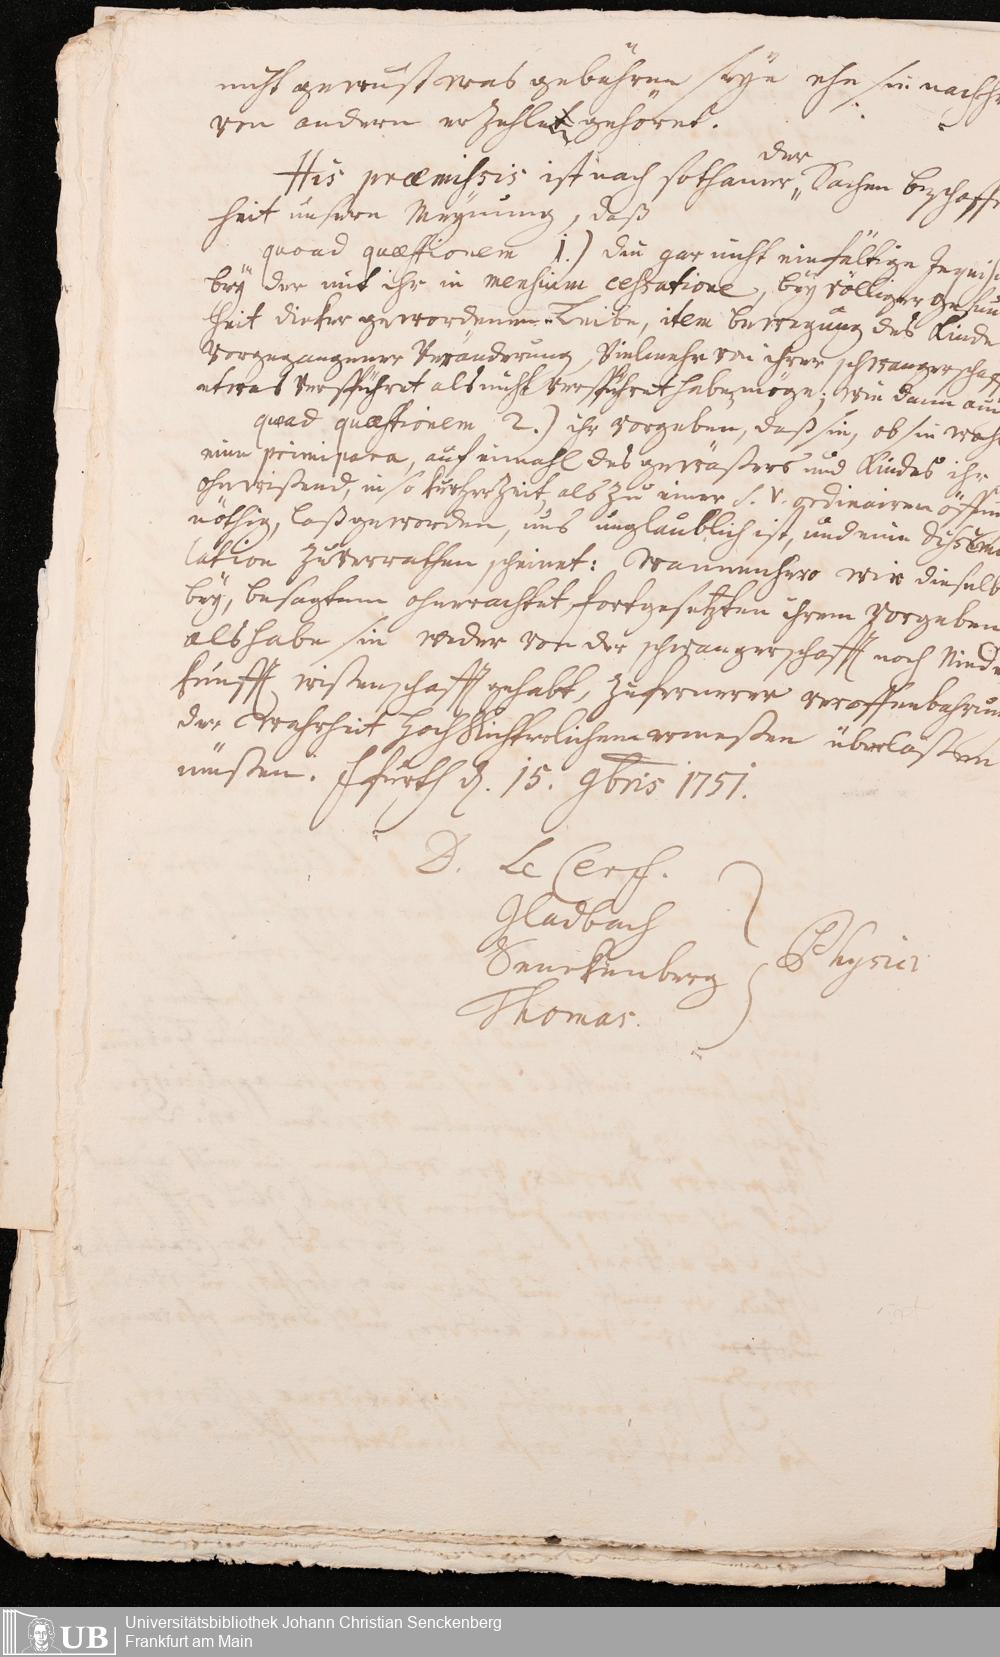 nicht gewust was gebähren seye ehe sie nach
von andern erzehlet gehöret.
His præmissis ist nach sothaner der Sachen beschaffen
heit unsere Meynung, daß
quoad quæstionem 1.) die gar nicht einfältige Inquisi
bey der mit ihr in mensium cessatione, bey völliger gesun
heit dicker gewordenem Leibe, item bewegung des Kinde
vorgegangener Veränderung, Vielmehr von ihrer schwangerschafft
etwas verspühret als nicht verspühret haben möge; wie dann auch
quoad quæstionem 2.) ihr vorgeben, daß sie, ob sie wohl
eine primipara, auf einmahl des gewäßers und Kindes ihr
ohnwißend, in so kurtzer Zeit als zu einer s. v. ordinairen öffnun
nöthig, loß geworden, uns unglaublich ist, und eine Dissimu
lation zu verrathen scheinet: Wannenhero wir dieselbe
bey, besagtem ohnerachtet, fortgesetzten ihrem Vorgeben
als habe sie weder von der schwangerschafft noch Nieder
kunfft wißenschafft gehabt, zu fernerer veroffenbahrung
der Wahrheit Hoch Richterlichem ermeßen überlaßen
müßen. Ffurth d. 15. 9bris 1751.
D. Le Cerf.
Gladbach
Senckenberg
Thomas.
Physici
UB
Universitätsbibliothek Johann Christian Senckenberg
Frankfurt am Main